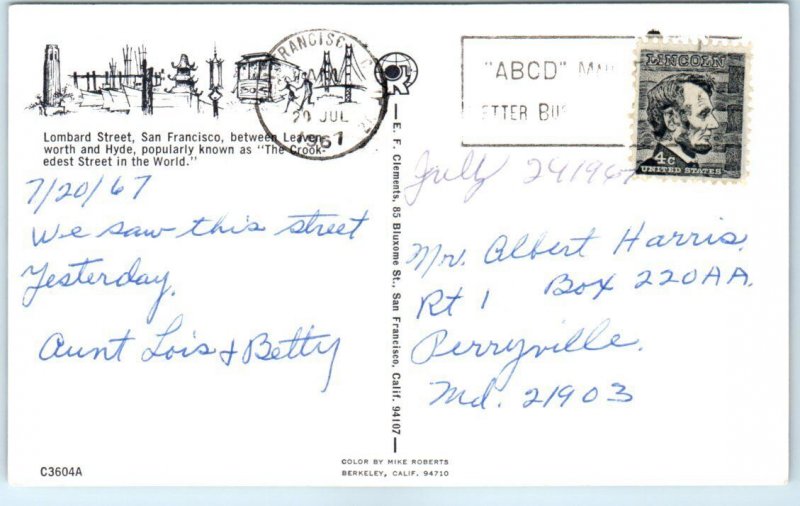 Lombard Street, San Francisco, between Leaven-
worth and Hyde, popularly known as "The Crook-
edest Street in the World."
7/20/67
We saw this street
Yesterday.
Aunt Lois & Betty
C3604A
FRANCISCO
20 JUL
1967
E. F. Clements, 85 Bluxome St., San Francisco, Calif. 94107
COLOR BY MIKE ROBERTS
BERKELEY, CALIF. 94710
"ABCD"
LINCOLN
4c
UNITED STATES
July 24 1967
Mr. Albert Harris.
Rt 1 Box 220AA.
Perryville.
Md. 21903